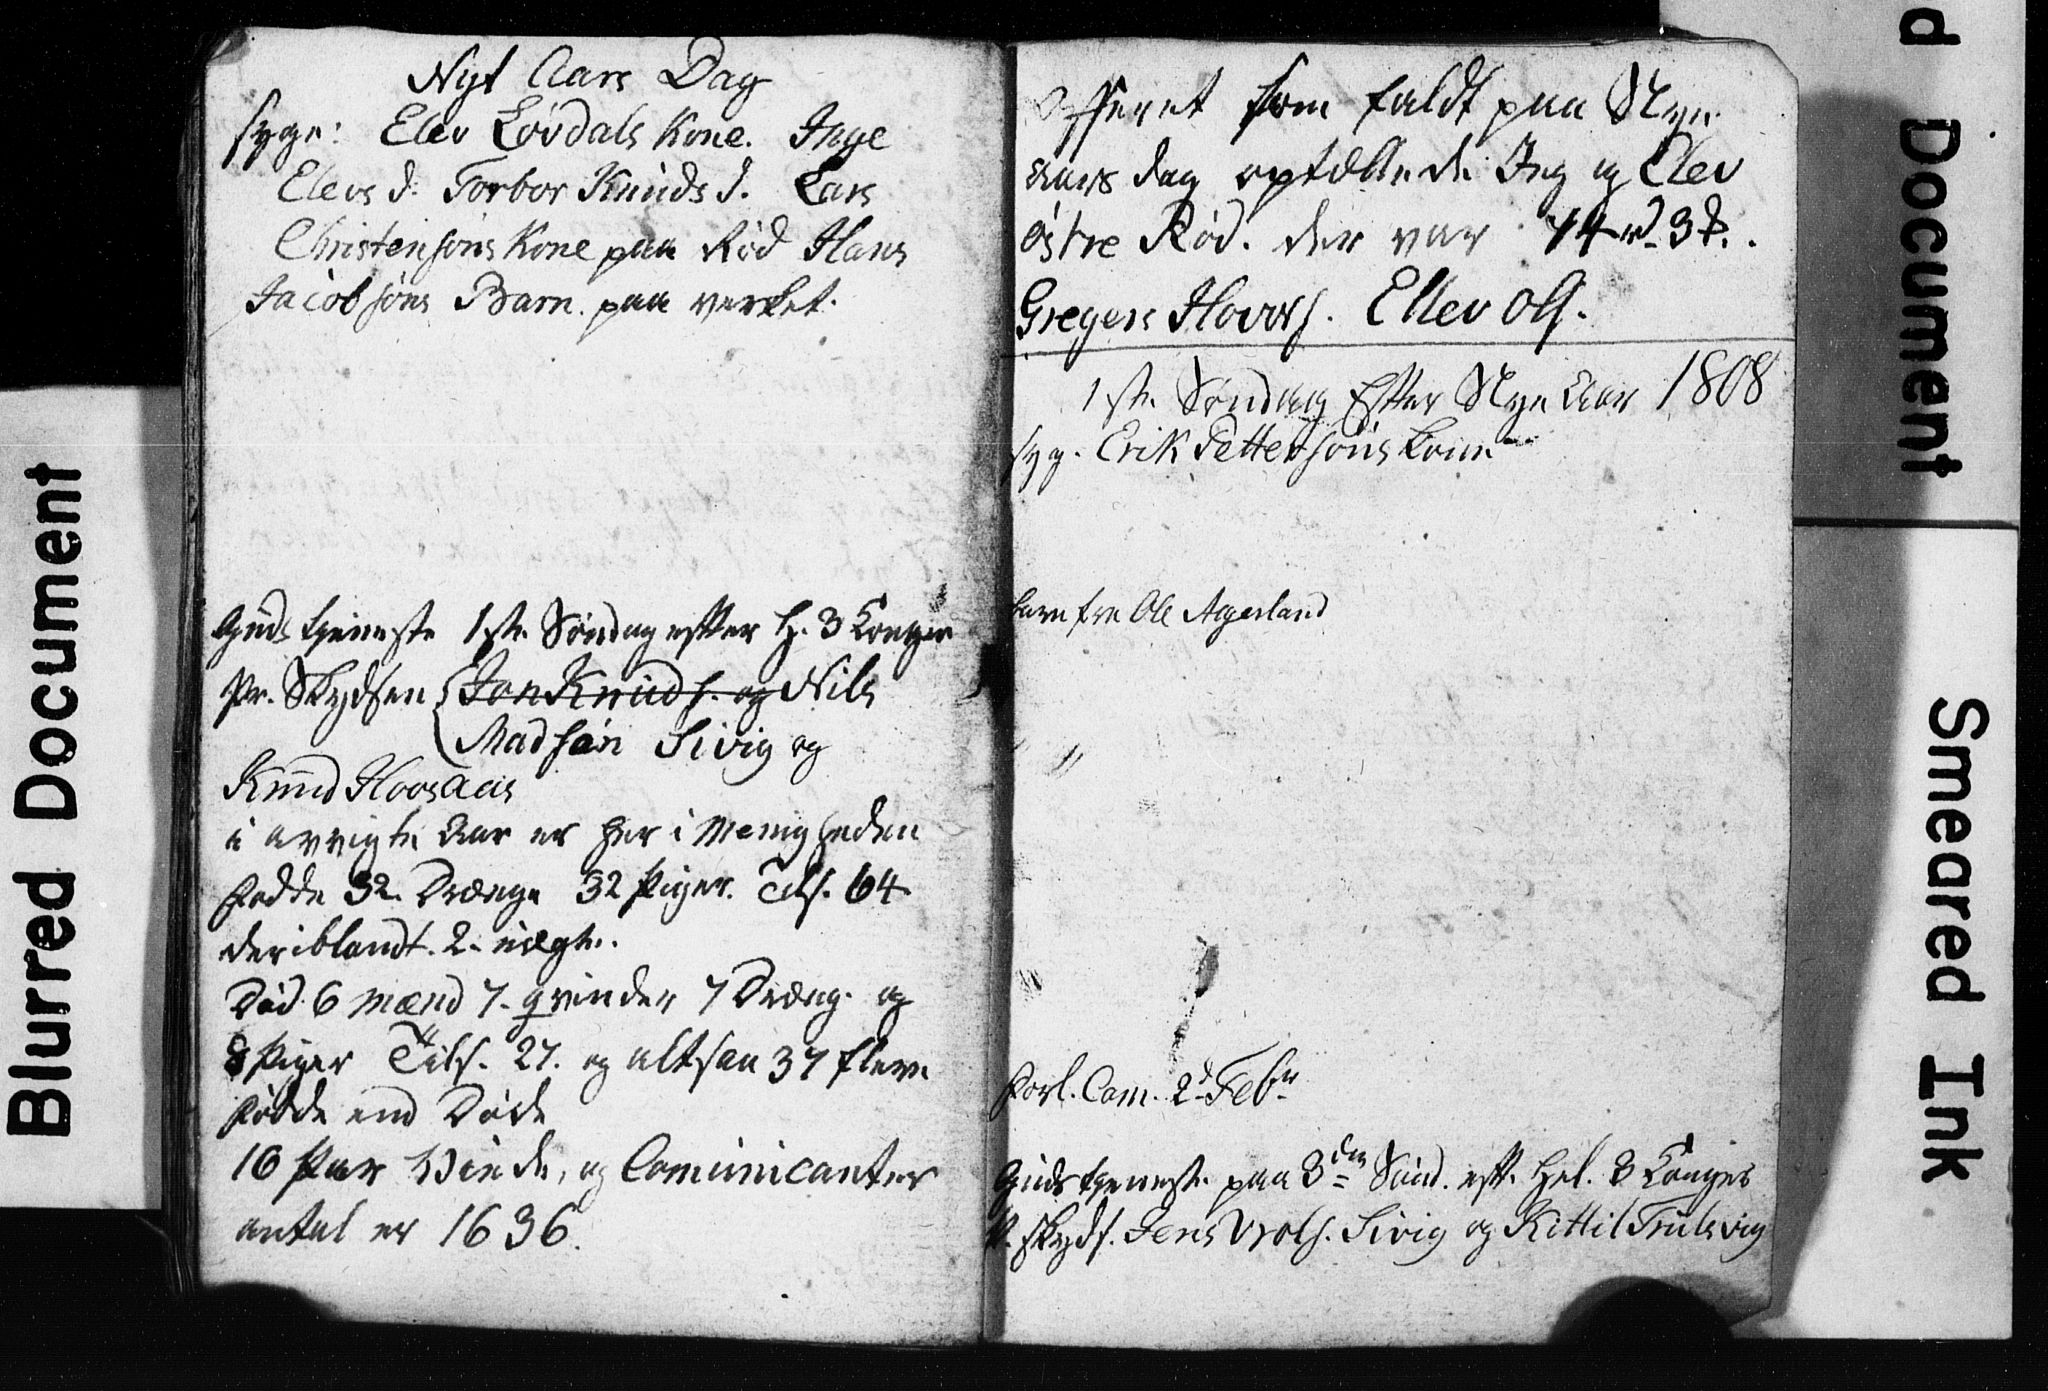 Nyt Aars Dag
syge: Elev Lövdals Kone. Inge
Elevs d: Torbor Knuds d. Lars
Christensöns Kone paa Röd Hans
Jacobsöns Barn. paa verket.
Guds tjeneste 1ste Söndag efter H. 3 Konger
Pr. Skydsen Jon Knuds. og Nils
Madsön Sivig og
Knud Hovsaas
i avvigte Aar er her i Menigheden
födde 32. Drænge 32 Piger. Tils. 64
der iblandt. 2. uægte.
Död. 6 Mænd 7. qvinder, 7 Dræng. og
8 Piger Tils. 27. og altsaa 37 flere
födde end Döde
16 Par Viede, og Comunicanter
antal er 1636.
Offeret som faldt paa Nye
aars dag optællede Jeg og Elev
östre Röd. der var 14 rd. 3
Gregers Hovors. Ellev Ols.
1ste Söndag Efter Nye Aar 1808
syg. Erik Pettersöns kone
barn fra Ole Agerland
Forl. Com. 2d Febr
Guds tjeneste paa 3den Sönd. eft. Hel. 3 Konger
P. skyds. Jens Wols. Sivig og Kittil Trulsvig
Blurred Document
d Document
Smeared Ink